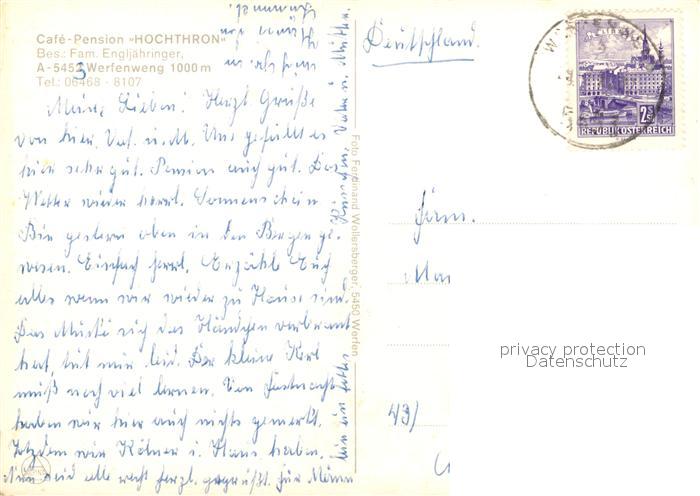 Café-Pension »HOCHTHRON«
Bes.: Fam. Engljähringer,
A-5453 Werfenweng 1000 m
Tel.: 06468 - 8107
Meine Lieben! Herzl. Grüße
von hier. Uns gefällt es
hier sehr gut. Pension auch gut. Das
Wetter wieder herrl. Sonnenschein
Bin gestern oben in den Bergen ge-
wesen. Einfach herrl. Erzähle Euch
alles wenn wir wieder zu Hause sind.
Das Muski sich das Händchen verbrannt
hat, tut mir leid. Der kleine Kerl
muß noch viel lernen. Von Fastnacht
haben wir hier auch nichts gemerkt.
Trotzdem wir Kölner i. Haus haben.
Nun seid alle recht herzl. gegrüßt.
Foto Ferdinand Wollersberger, 5450 Werfen
Deutschland.
2S
REPUBLIK ÖSTERREICH
Fam.
43)
privacy protection
Datenschutz